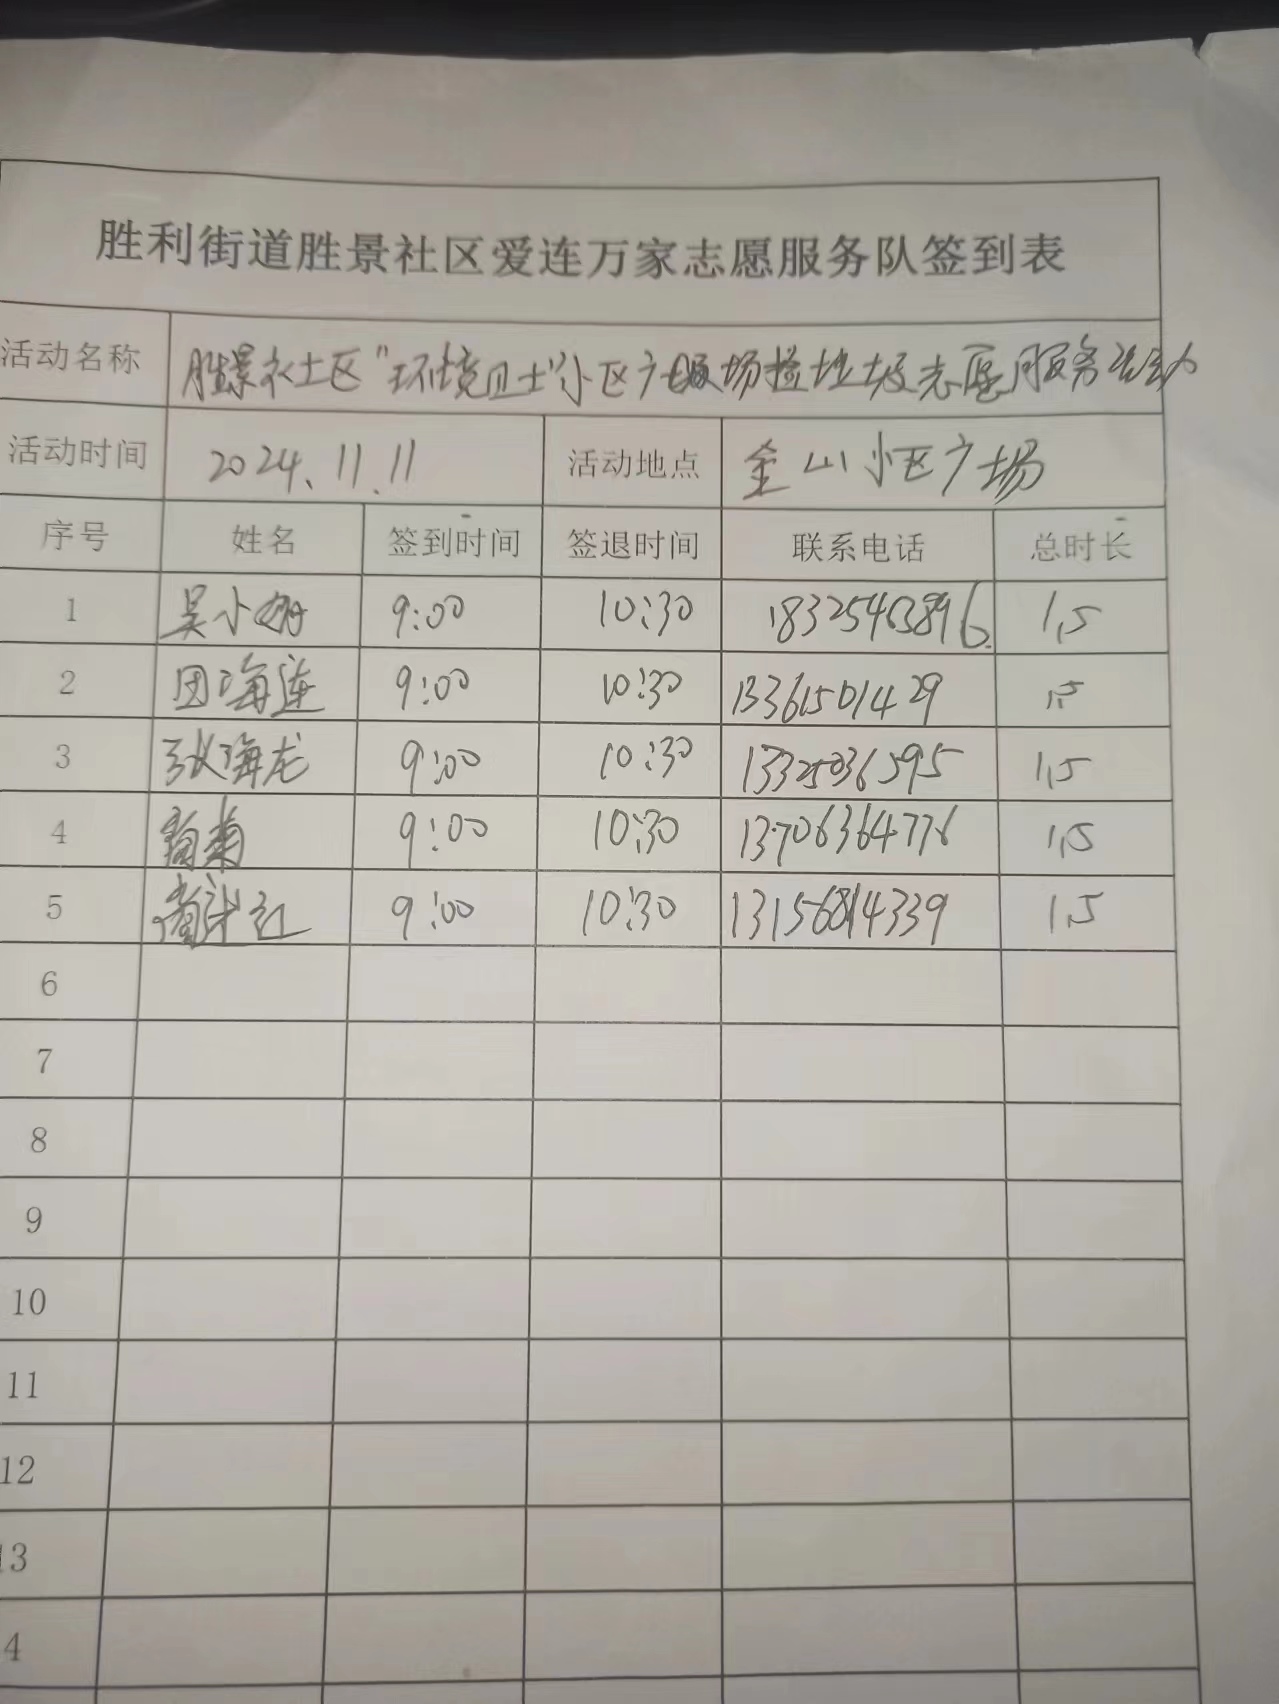 胜利街道胜景社区爱连万家志愿服务队签到表
活动名称 胜景社区"环境卫士"小区广场捡垃圾志愿服务活动
活动时间 2024.11.11 活动地点 金山小区广场
序号 姓名 签到时间 签退时间 联系电话 总时长
1 吴小 9:00 10:30 18325463896 1.5
2 田海莲 9:00 10:30 13361501429 1.5
3 张海龙 9:00 10:30 13325036595 1.5
4 9:00 10:30 13706364776 1.5
5 红 9:00 10:30 13156814339 1.5
6
7
8
9
10
11
12
13
4